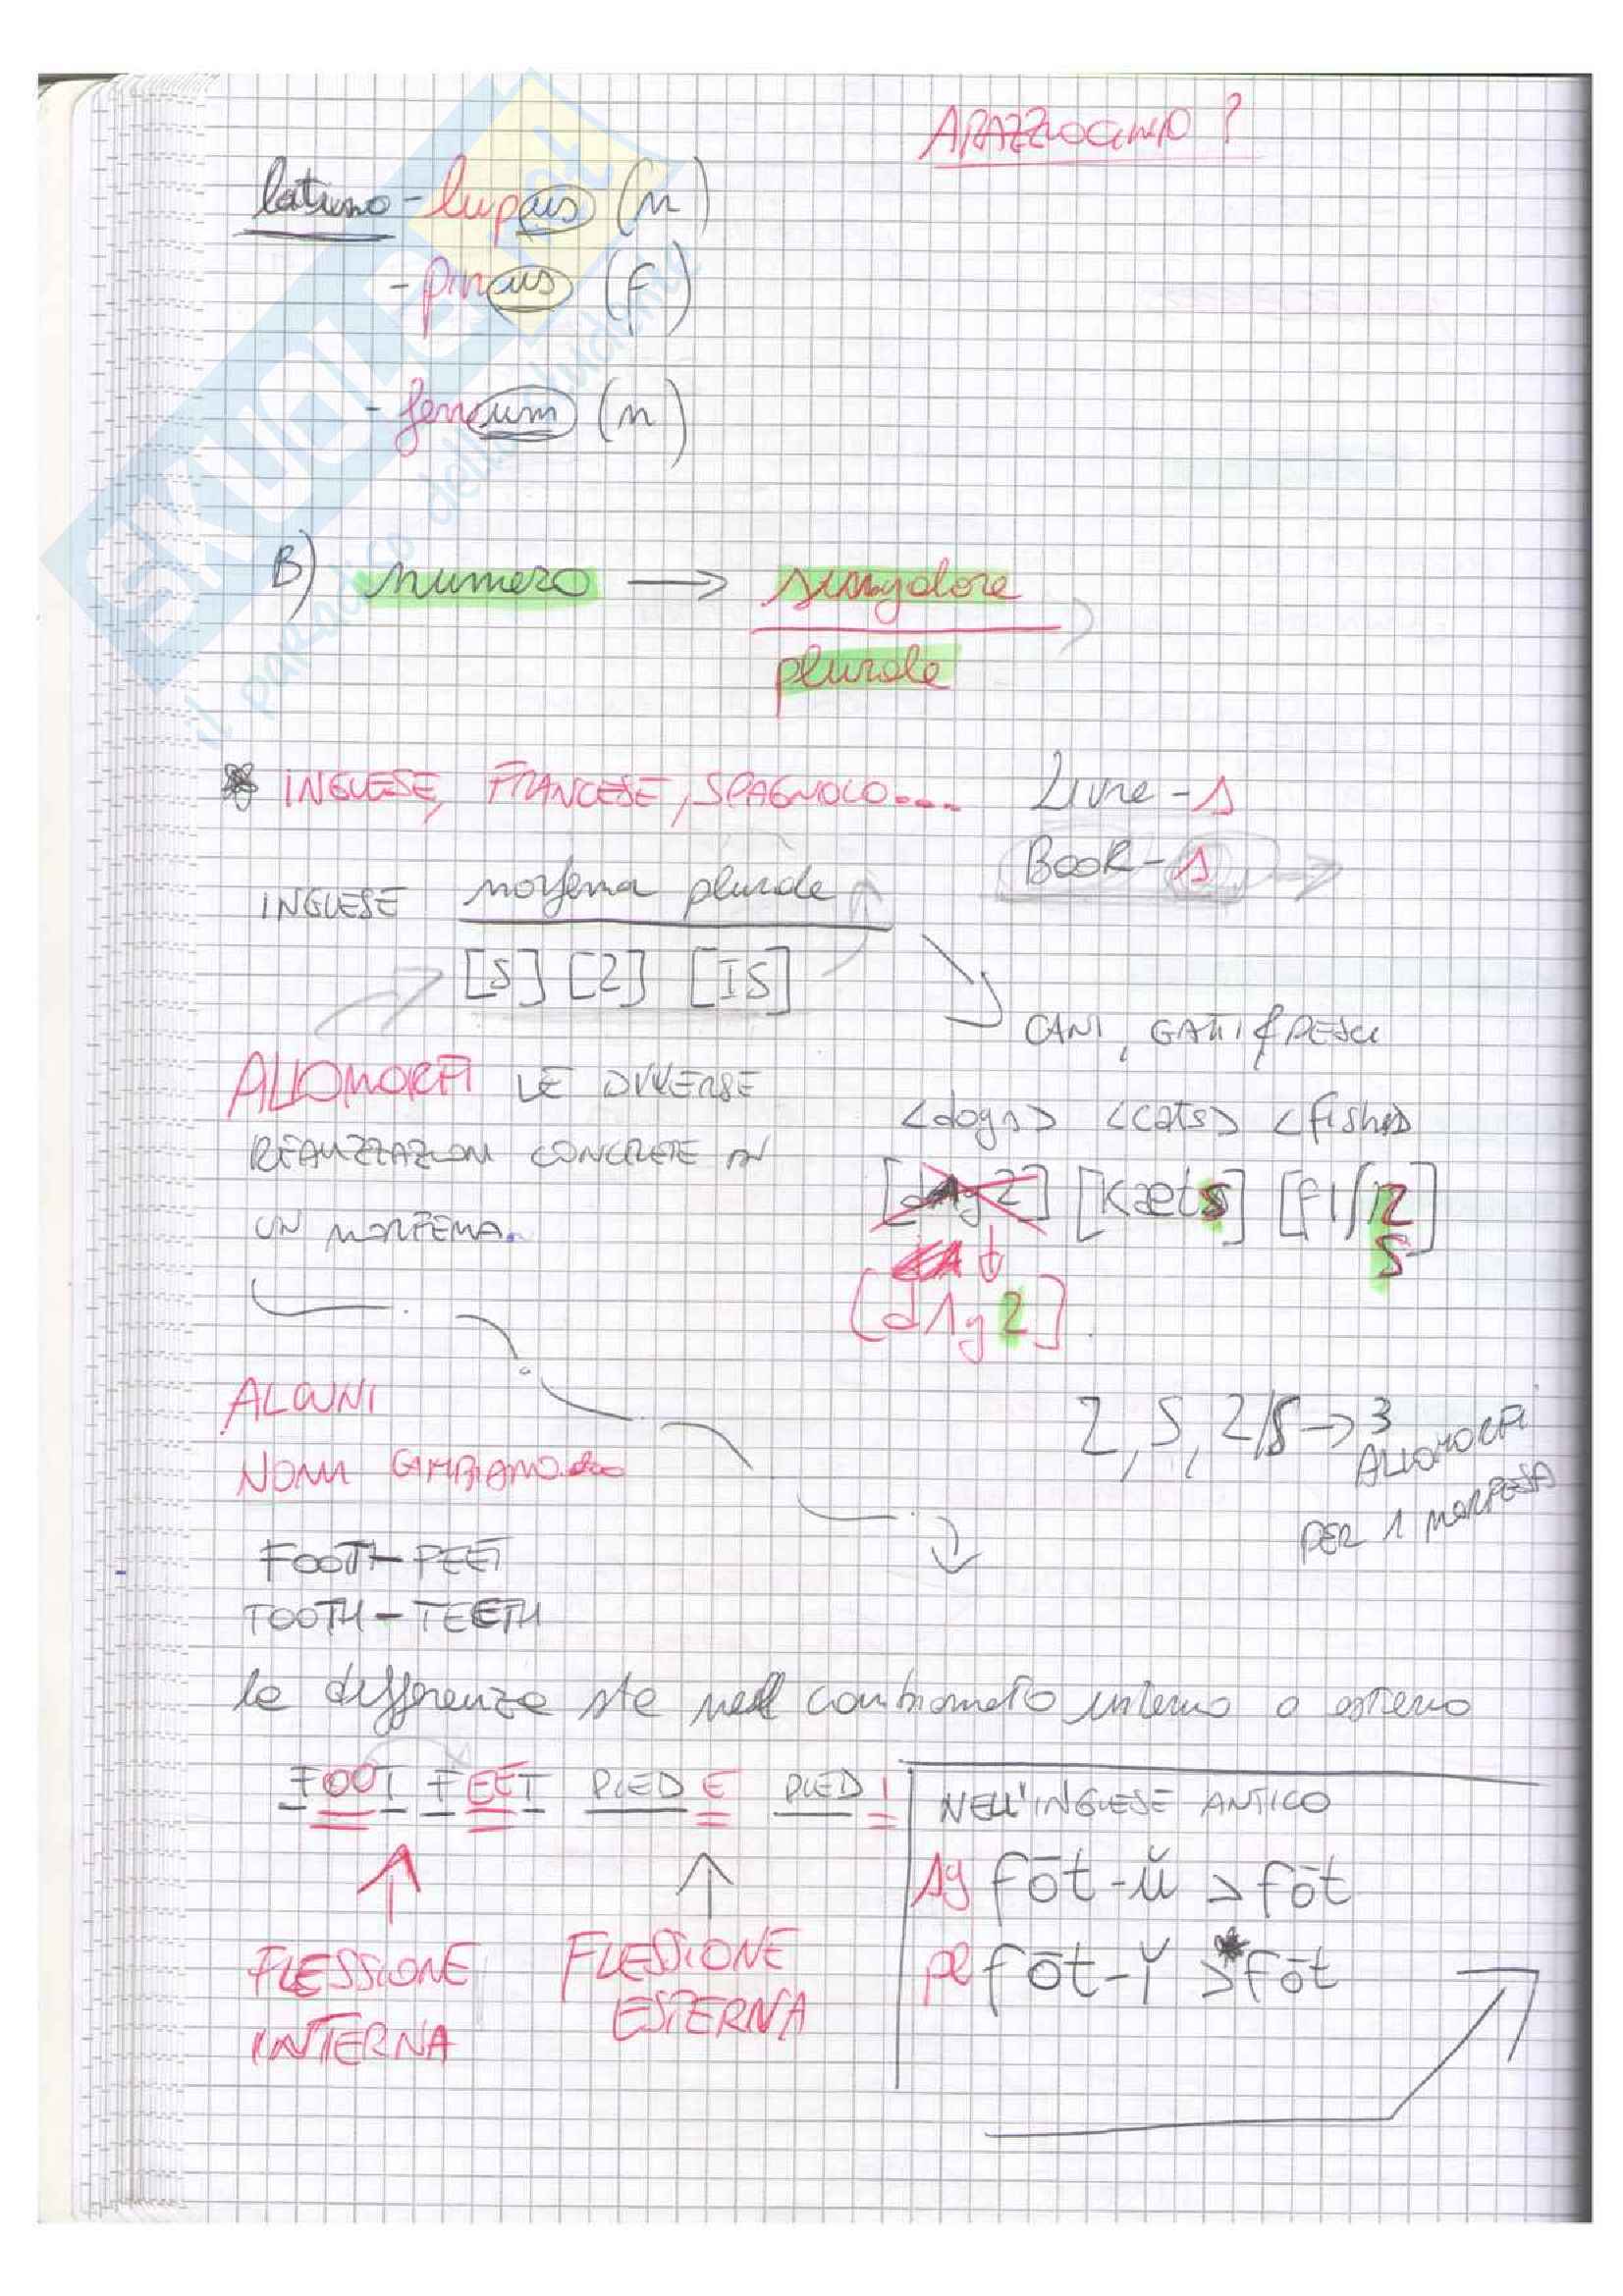 latino - lupus (m)
- pinus (F)
- ferrum (n)
B) numero → singolare
plurale
* INGLESE, FRANCESE, SPAGNOLO....
Livre - s
BOOK - s
INGLESE morfema plurale
[S] [Z] [IS]
CANI, GATTI & PESCI
ALLOMORFI LE DIVERSE
REALIZZAZIONI CONCRETE DI
UN MORFEMA.
<dogs> <cats> <fishes>
[kæts] [fIʃIZ]
S
[dʌgZ]
Z, S, Z/S → 3
ALLOMORFI
PER 1 MORFEMA
ALCUNI
NOMI CAMBIANO...
FOOTH - FEET
TOOTH - TEETH
la differenza sta nel cambiamento interno o esterno
FOOT FEET PIED E PIED I
FLESSIONE
INTERNA
FLESSIONE
ESTERNA
NELL'INGLESE ANTICO
sg fōt-ŭ > fōt
pl fōt-ĭ >* fōt
SKUOLA.net
il paradiso dello studente